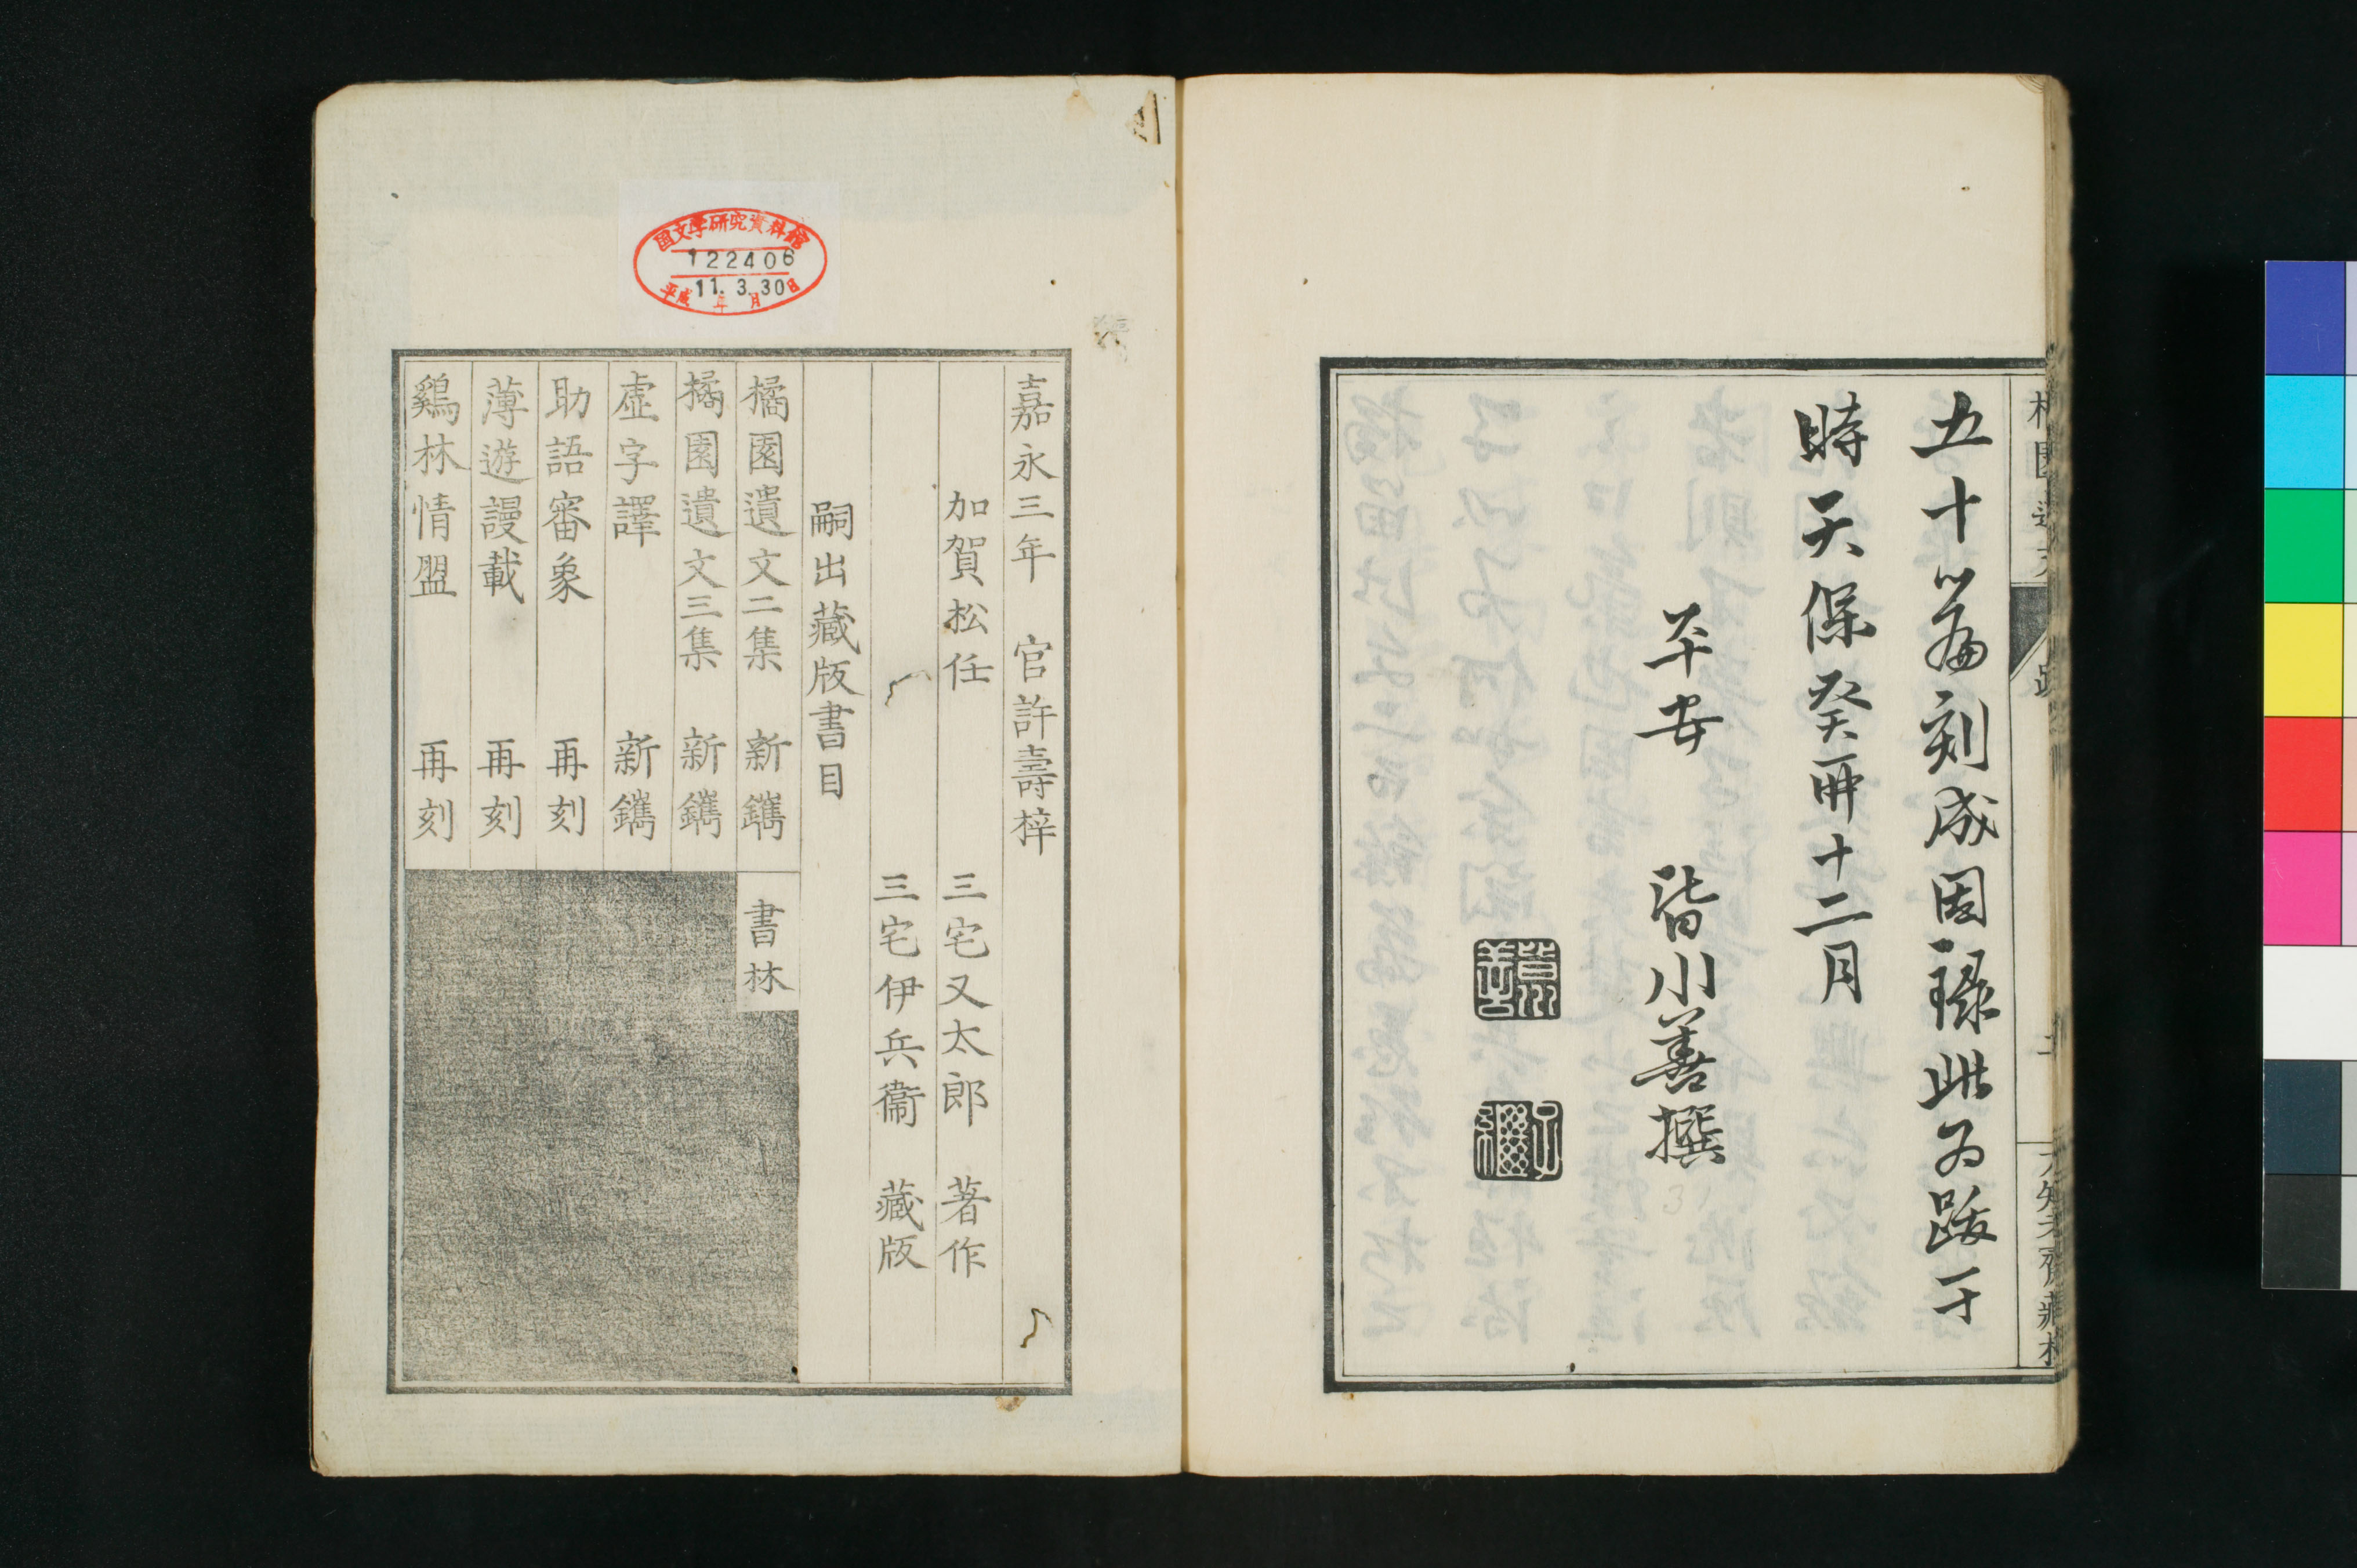 五十篇刻成因録此为跋于
時天保癸卯十二月
平安 皆小善撰
国文学研究資料館
122406
平成 11年 3月 30日
嘉永三年 官許壽梓
加賀松任 三宅又太郎 著作
三宅伊兵衞 藏版
嗣出藏版書目
橘園遺文二集 新鐫
橘園遺文三集 新鐫
虛字譯 新鐫
助語審象 再刻
薄遊謾載 再刻
鷄林情盟 再刻
書林